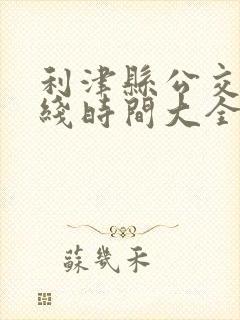 利津縣公交
綫時間大全
蘇幾禾